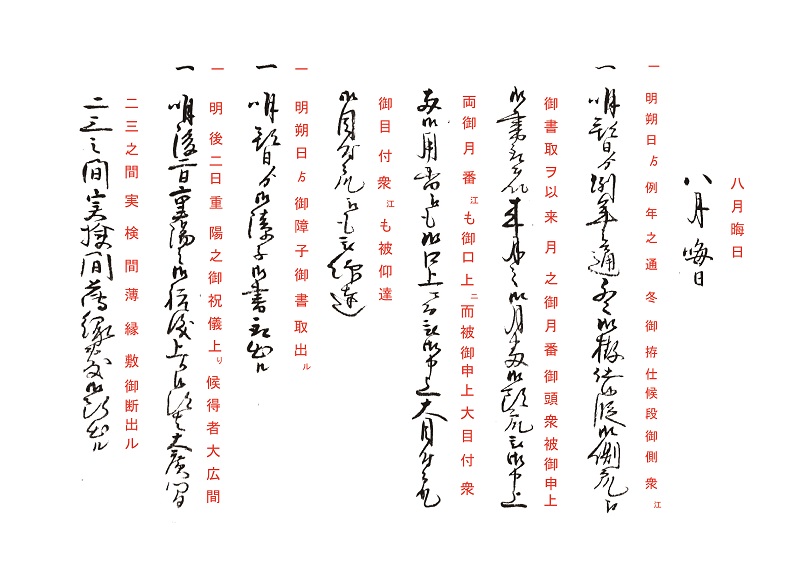 八月晦日
八月晦日
一明朔日ゟ例年之通冬御拵仕候段御側衆江
一明朔日ゟ例年之通冬御拵仕候段御側衆江
御書取ヲ以来月之御月番御頭衆被御申上
御書取ヲ以来月之御月番御頭衆被御申上
両御月番江も御口上ニ而被御申上大目付衆
両御月番江も御口上ニ而被御申上大目付衆
御目付衆江も被仰達
御目付衆江も被仰達
一明朔日ゟ御障子御書取出ル
一明朔日ゟ御障子御書取出ル
一明後二日重陽之御祝儀上り候得者大広間
一明後二日重陽之御祝儀上り候得者大広間
二三之間実検間薄縁敷御断出ル
二三之間実検間薄縁敷御断出ル